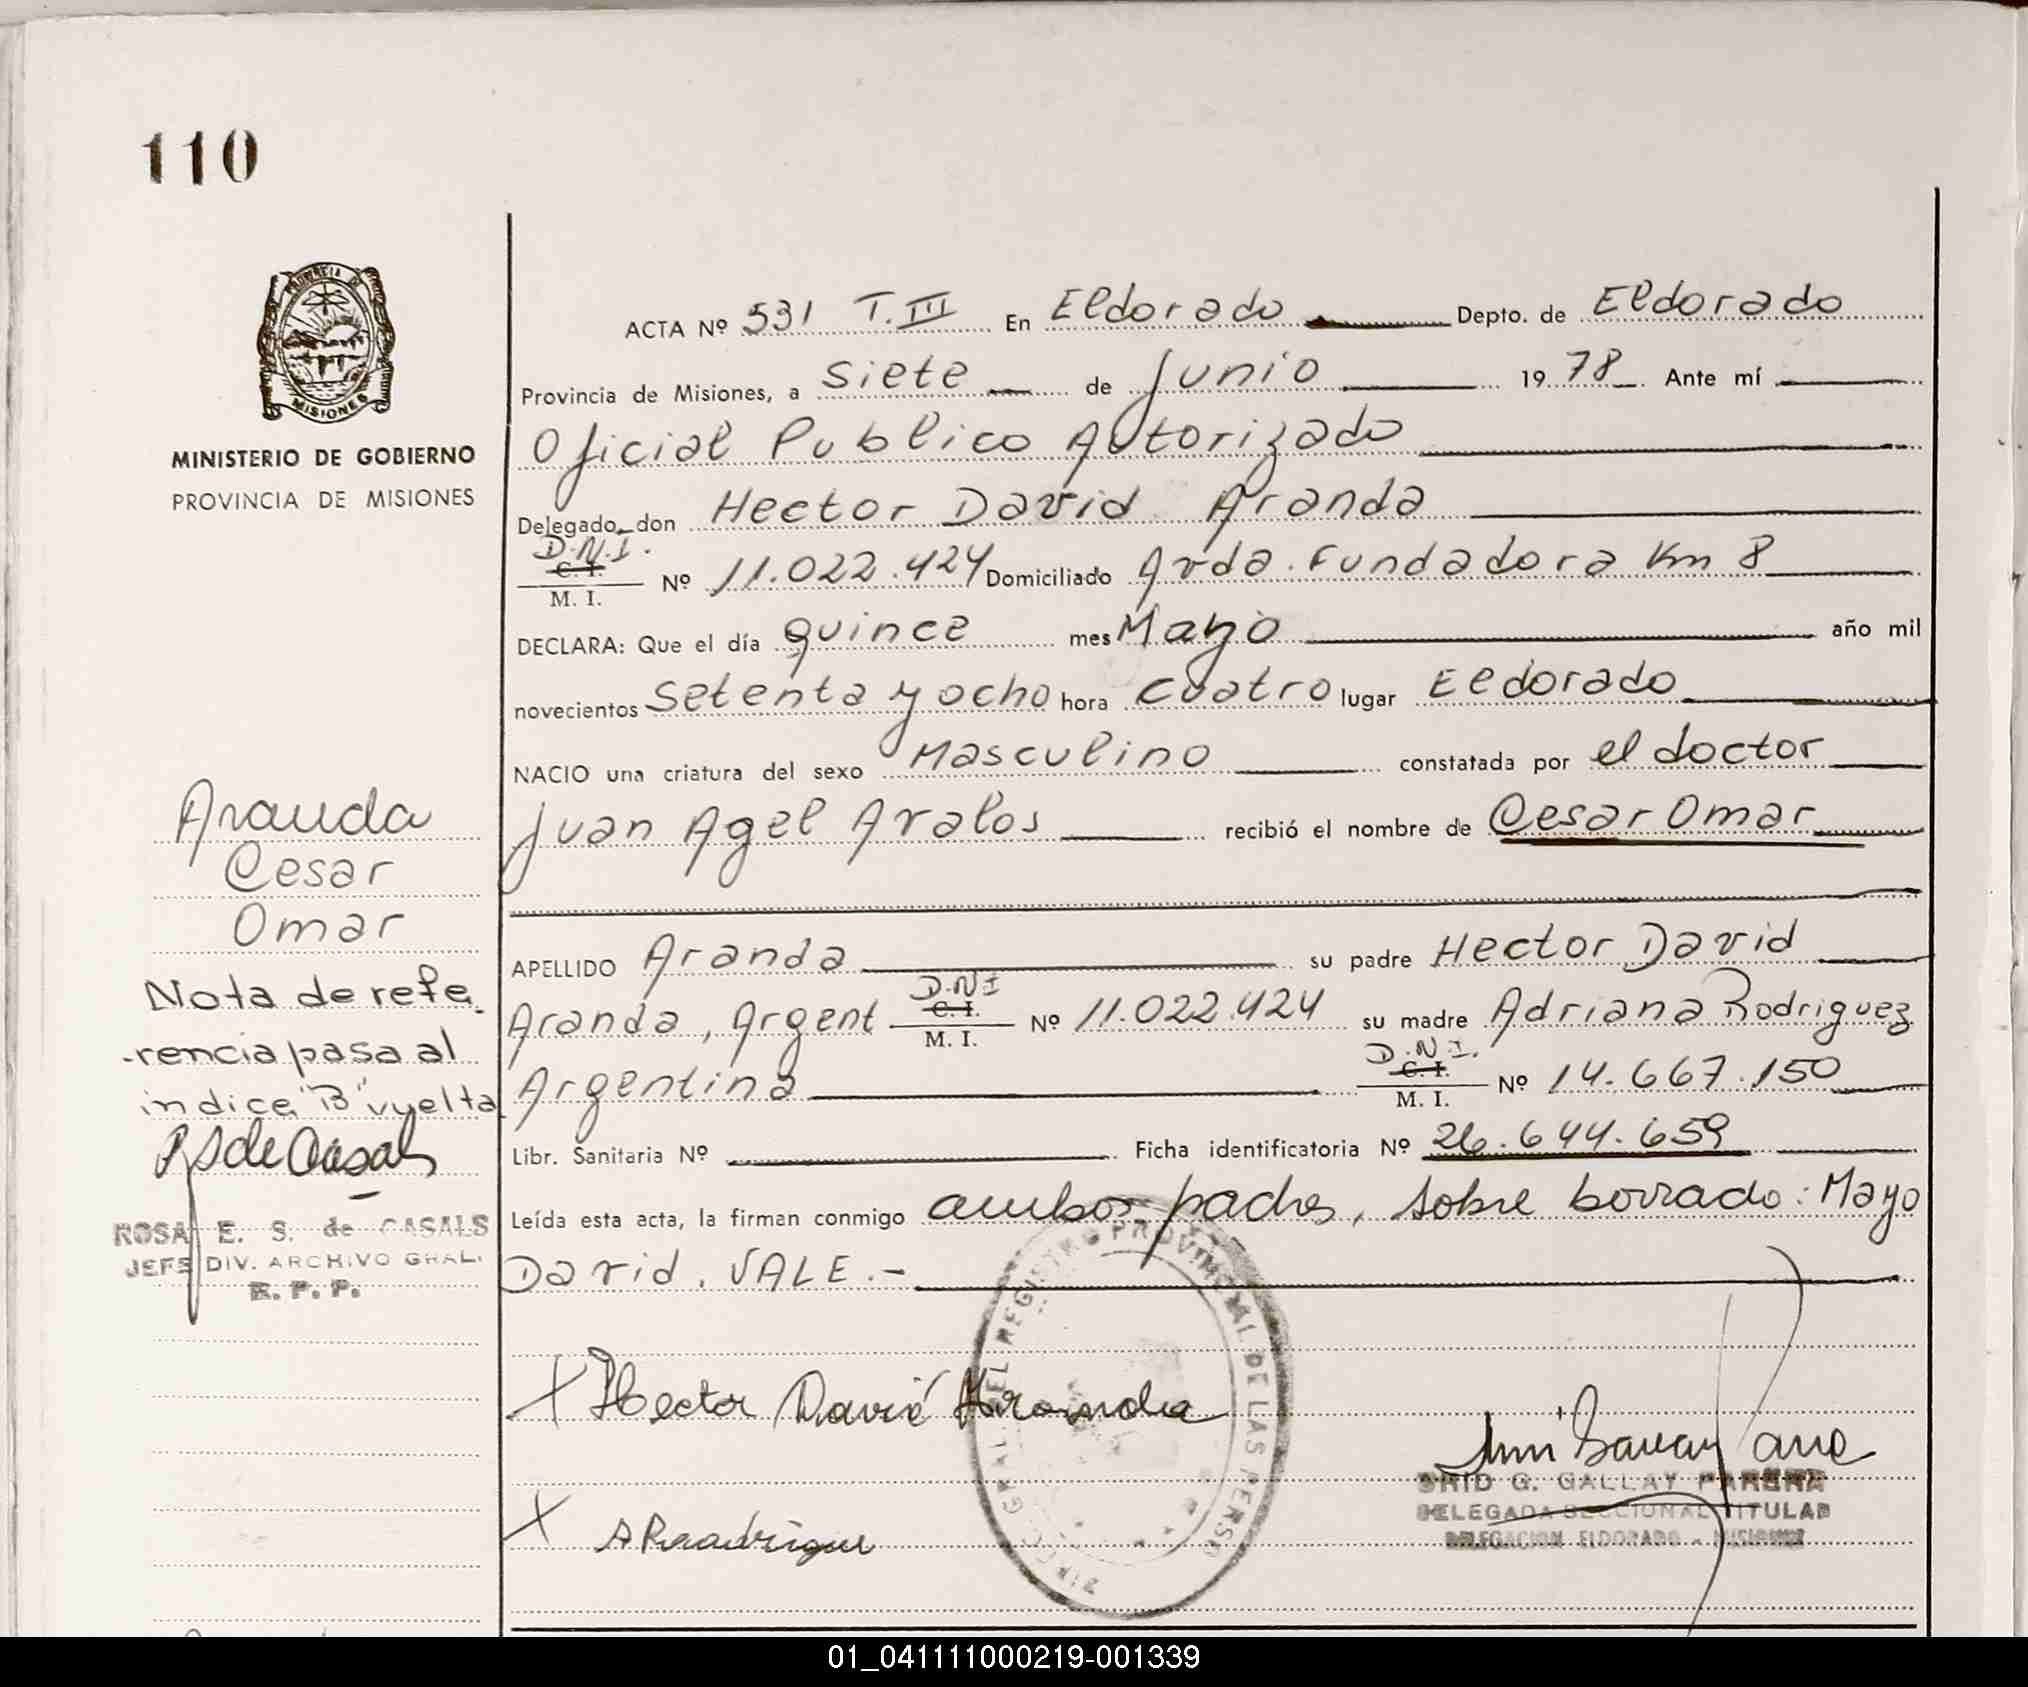 110
PROVINCIA DE
MISIONES
MINISTERIO DE GOBIERNO
PROVINCIA DE MISIONES
ACTA Nº 531 T.III En Eldorado Depto. de Eldorado
Provincia de Misiones, a siete de Junio 1978 Ante mí
Oficial Publico Autorizado
Delegado don Hector David Aranda
D.N.I.
C. I.
M. I.
Nº 11.022.424 Domiciliado Avda. Fundadora Km 8
DECLARA: Que el día quince mes Mayo año mil
novecientos setenta y ocho hora cuatro lugar Eldorado
NACIO una criatura del sexo Masculino constatada por el doctor
Juan Agel Avalos recibió el nombre de Cesar Omar
APELLIDO Aranda su padre Hector David
Aranda, Argent D.N.I C. I. M. I. Nº 11.022.424 su madre Adriana Rodriguez
Argentina D.N.I. C. I. M. I. Nº 14.667.150
Libr. Sanitaria Nº Ficha identificatoria Nº 26.644.659
Leída esta acta, la firman conmigo ambos padres, sobre borrado: Mayo
David. VALE.-
Aranda
Cesar
Omar
Nota de refe
-rencia pasa al
indice "B" vuelta
R S de Casals
ROSA E. S. de CASALS
JEFE DIV. ARCHIVO GRAL.
R. P. P.
X Hector David Aranda
X A Rodriguez
GRAL. DEL REGISTRO PROVINCIAL DE LAS PERSO
G. GALLAY PARERA
DELEGADA SECCIONAL TITULAR
DELEGACION ELDORADO - MISIONES
01_041111000219-001339